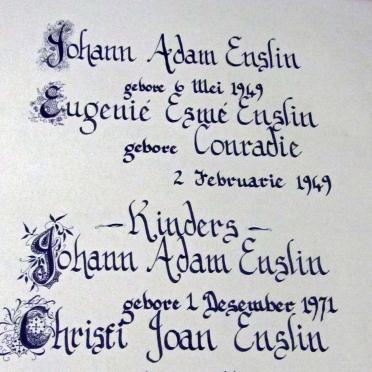 Johann Adam Enslin
gebore 6 Mei 1949
Eugenié Esmé Enslin
gebore Conradie
2 Februarie 1949
—Kinders—
Johann Adam Enslin
gebore 1 Desember 1971
Christi Joan Enslin